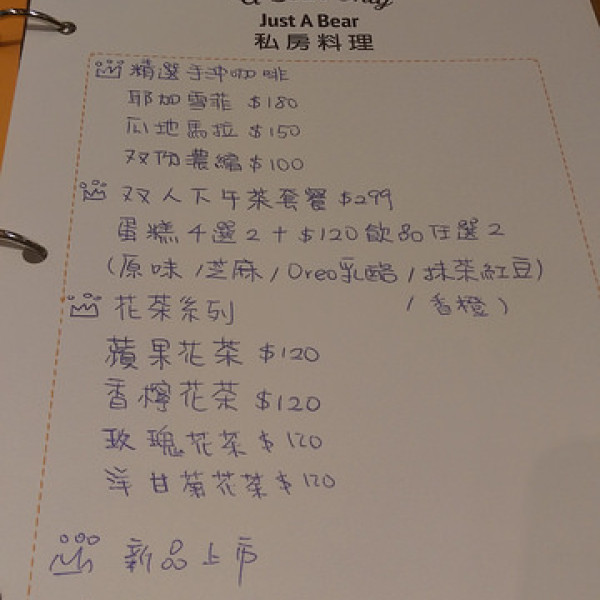 Just A Bear
私房料理
精選手沖咖啡
耶加雪菲 $180
瓜地馬拉 $150
双份濃縮 $100
双人下午茶套餐 $299
蛋糕4選2+$120飲品任選2
(原味/芝麻/Oreo乳酪/抹茶紅豆)
/香橙)
花茶系列
蘋果花茶 $120
香檸花茶 $120
玫瑰花茶 $120
洋甘菊花茶 $120
新品上市